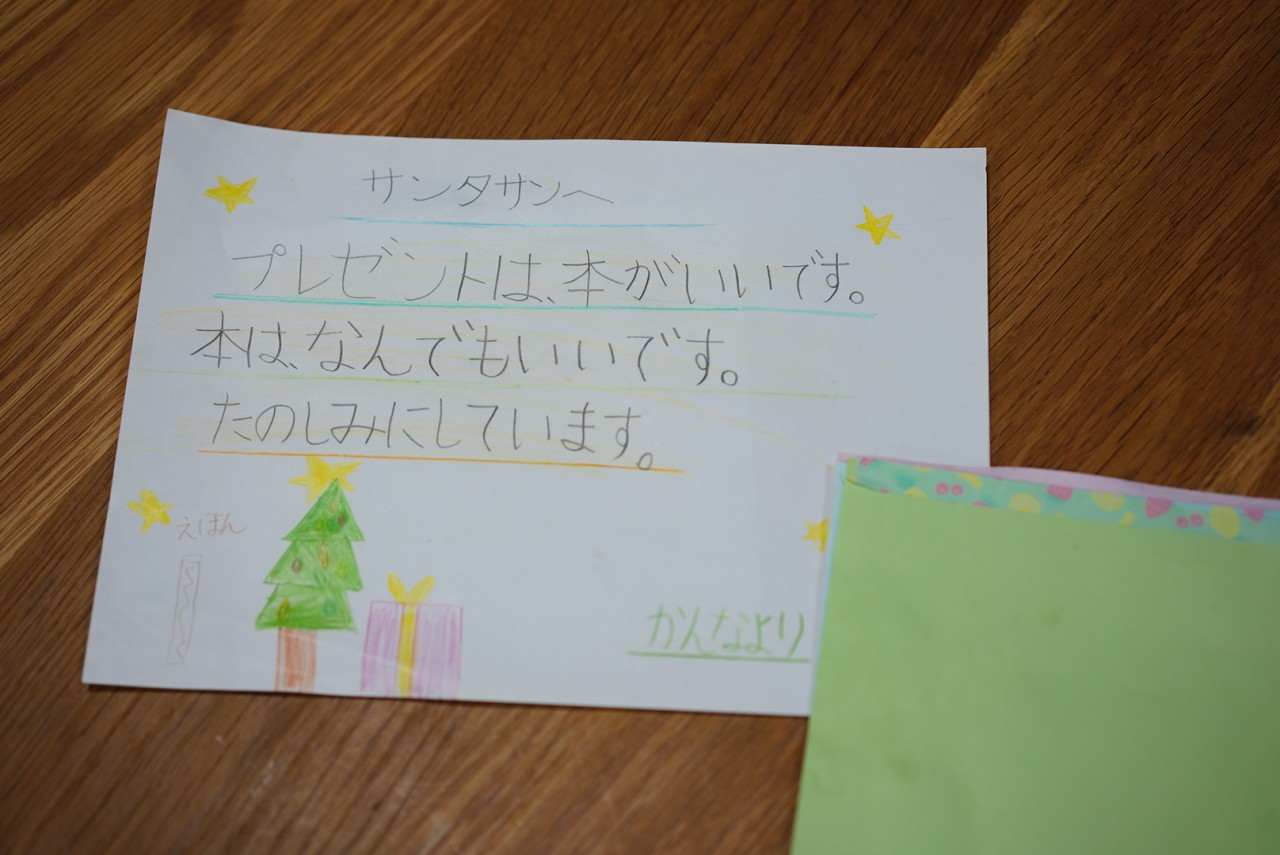 サンタサンへ
プレゼントは、本がいいです。
本は、なんでもいいです。
たのしみにしています。
えほん
かんなより